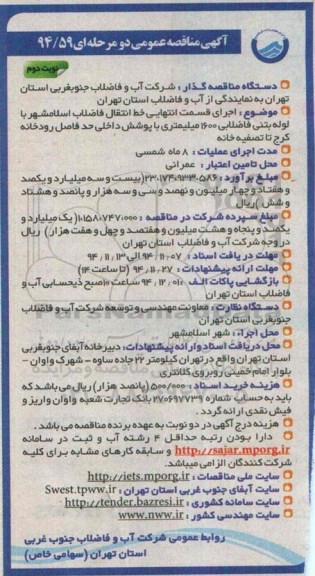 آگهی مناقصه عمومی دو مرحله ای ۹۴/۵۹
نوبت دوم
دستگاه مناقصه گذار : شرکت آب و فاضلاب جنوبغربی استان
تهران به نمایندگی از آب و فاضلاب استان تهران
موضوع : اجرای قسمت انتهایی خط انتقال فاضلاب اسلامشهر با
لوله بتنی فاضلابی ۱۶۰۰ میلیمتری با پوشش داخلی حد فاصل رودخانه
کرج تا تصفیه خانه
مدت اجرای عملیات : ۸ ماه شمسی
محل تامین اعتبار : عمرانی
مبلغ برآورد : ۲۳۰۱۷۴۰۹۳۳۰۵۸۶ (بیست و سه میلیارد و یکصد
و هفتاد و چهار میلیون و نهصد و سی و سه هزار و پانصد و هشتاد
و شش) ریال
مبلغ سپرده شرکت در مناقصه : ۱٫۱۵۸٫۷۴۷٫۰۰۰ (یک میلیارد و
یکصد و پنجاه و هشت میلیون و هفتصد و چهل و هفت هزار) ریال
در وجه شرکت آب و فاضلاب استان تهران
مهلت دریافت اسناد : ۹۴/۱۱/۰۷ الی ۹۴/۱۱/۱۳
مهلت ارائه پیشنهادات : ۹۴/۱۱/۲۷ (تا ساعت ۱۴)
بازگشایی پاکات الف : ۹۴/۱۲/۰۱ ساعت ۱۰ صبح ذیحسابی آب و
فاضلاب استان تهران
دستگاه نظارت : معاونت مهندسی و توسعه شرکت آب و فاضلاب
جنوبغربی استان تهران
محل اجرا : شهر اسلامشهر
محل دریافت اسناد و ارائه پیشنهادات : دبیرخانه آبفای جنوبغربی
استان تهران واقع در تهران کیلومتر ۲۲ جاده ساوه - شهرک واوان -
بلوار امام خمینی روبروی کلانتری
هزینه خرید اسناد : ۵۰۰/۰۰۰ (پانصد هزار) ریال می باشد که
باید به حساب شماره ۲۷۰۶۹۷۷۳۹ بانک تجارت شعبه واوان واریز و
فیش نقدی ارائه گردد .
هزینه درج آگهی در دو نوبت به عهده برنده مناقصه می باشد .
دارا بودن رتبه حداقل ۴ رشته آب و ثبت در سامانه
http://sajar.mporg.ir و سابقه کارهای مشابه برای کلیه
شرکت کنندگان الزامی میباشد.
سایت ملی مناقصات : http://iets.mporg.ir
سایت آبفای جنوب غربی استان تهران : Swest.tpww.ir
سایت سامانه کشوری : http://tender.bazresi.ir
سایت مهندسی کشور : www.nww.ir
روابط عمومی شرکت آب و فاضلاب جنوب غربی
استان تهران (سهامی خاص)